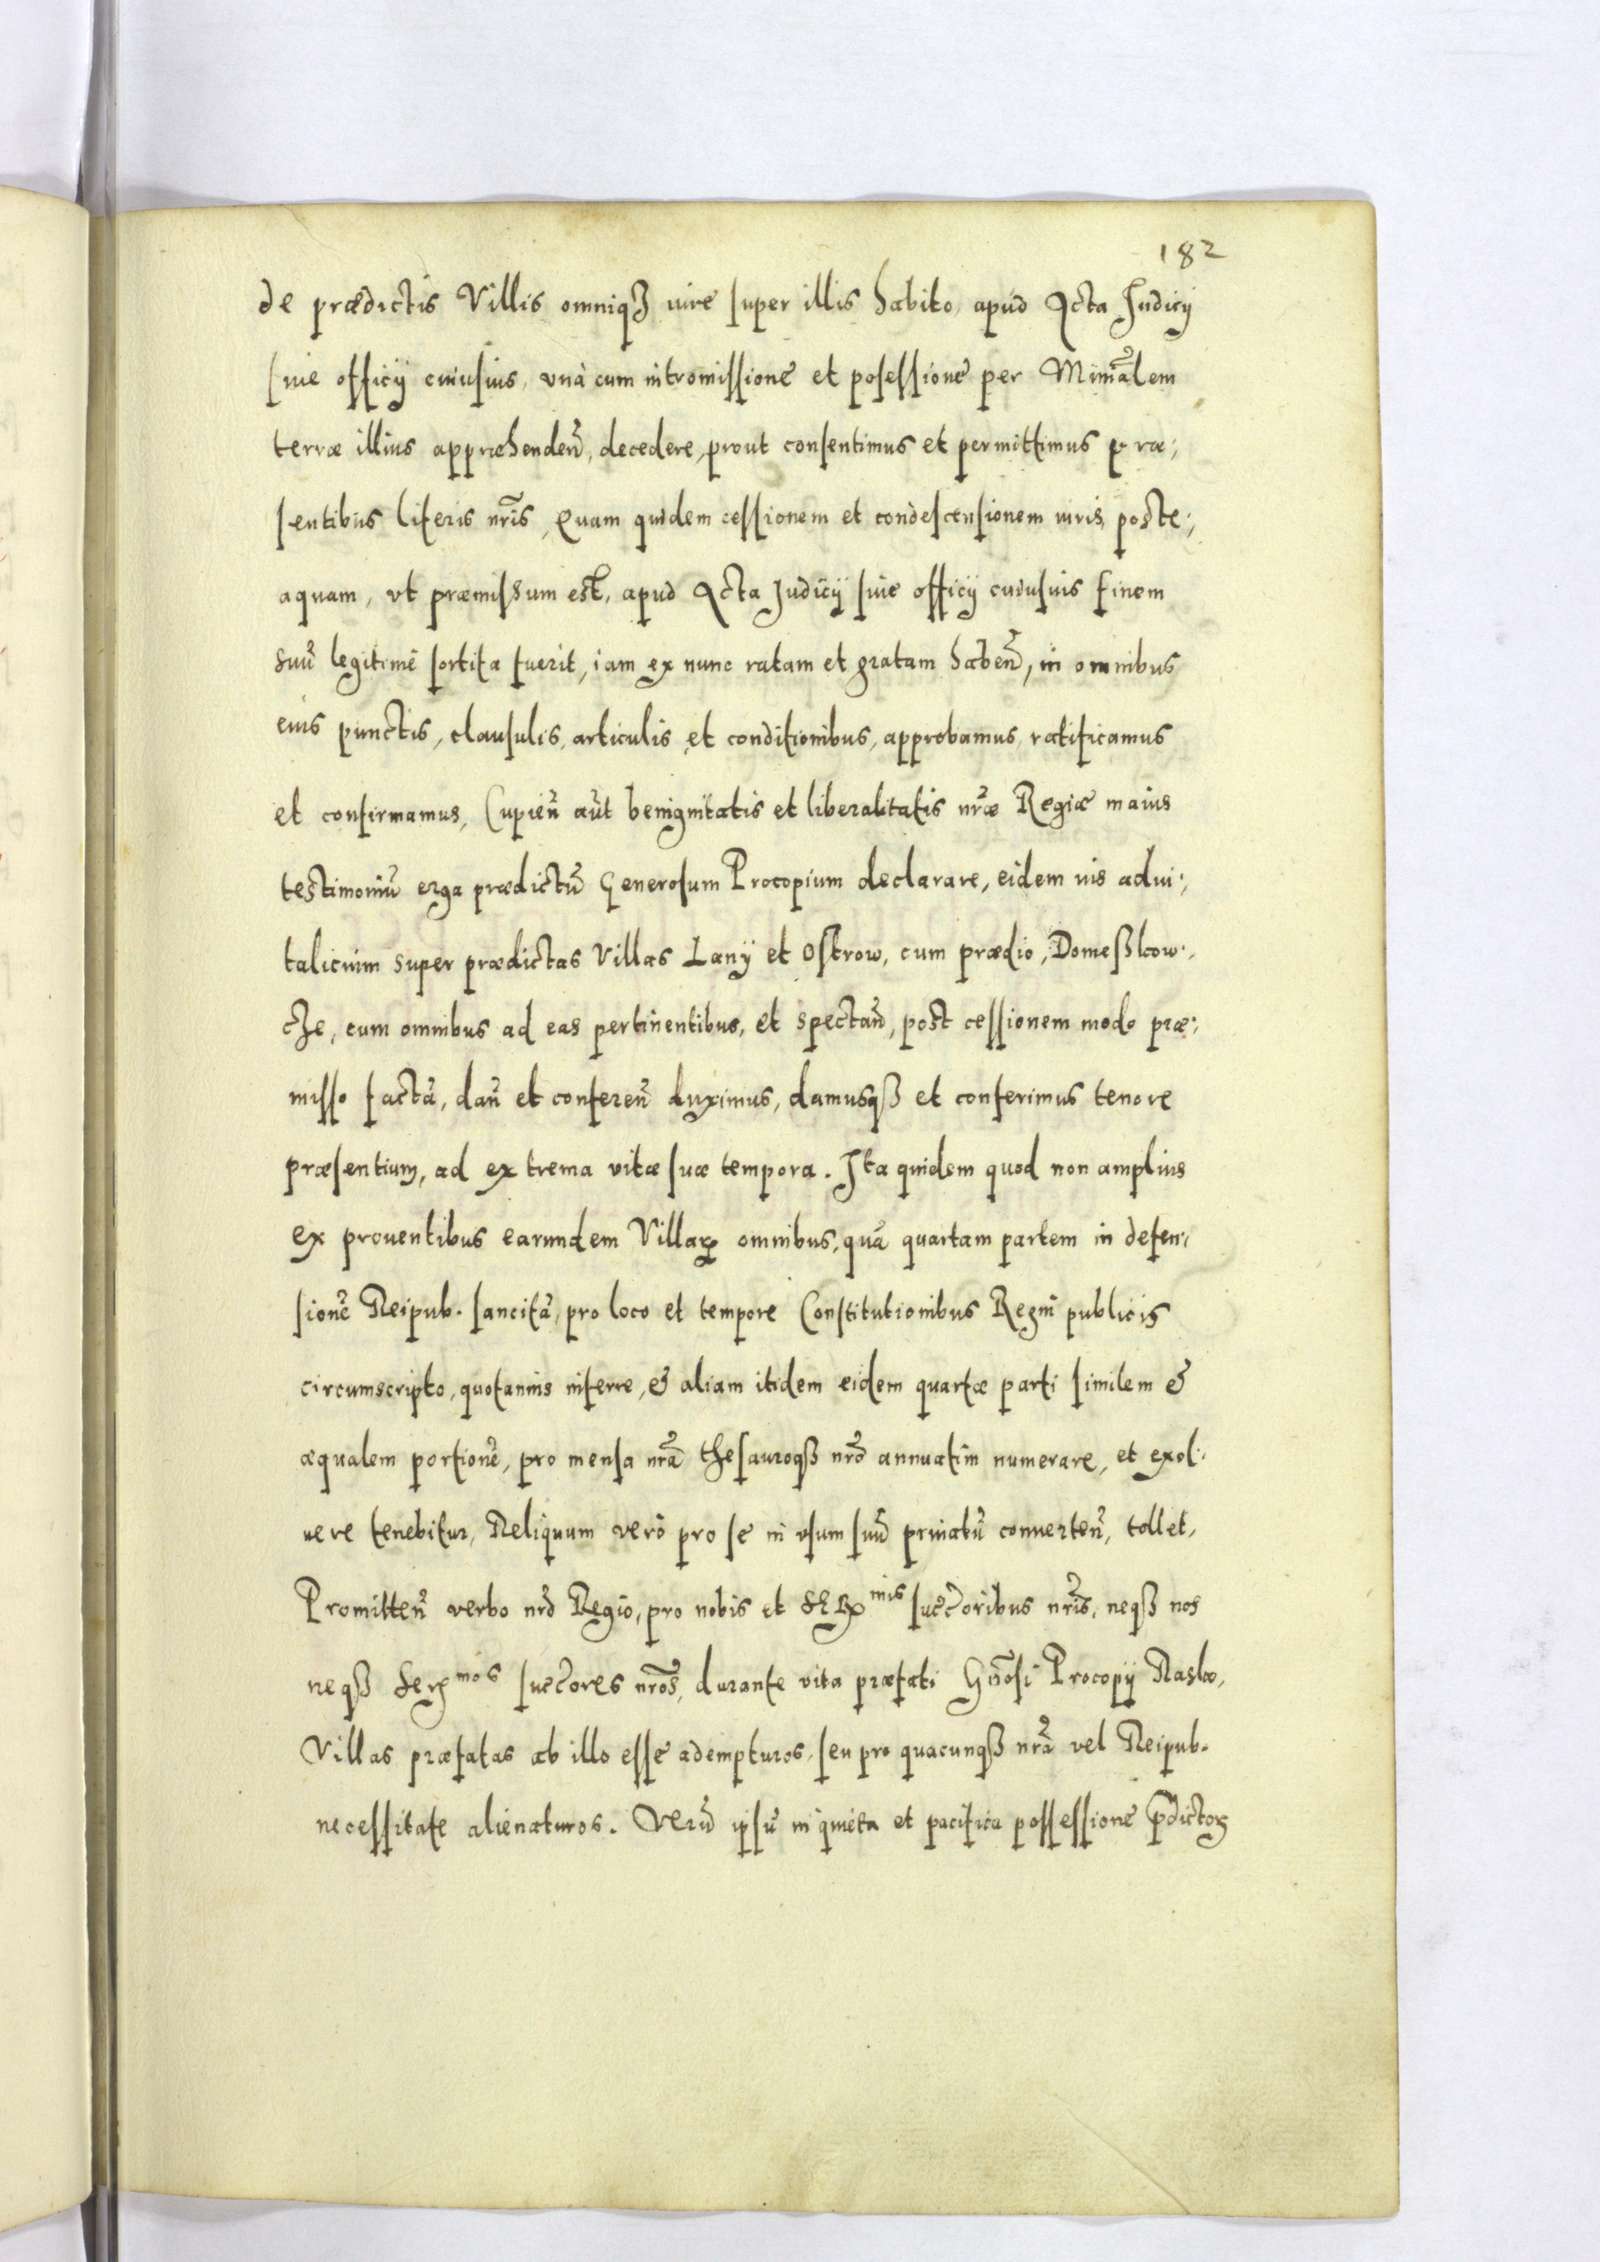 182
de prædictis Villis omniqꝫ iure super illis habito, apud Acta Judicij
siue officij cuiusuis, vnà cum intromissione et posessione per Minr̃alem
terræ illius apprehendeñ, decedere, prout consentimus et permittimus præ;
sentibus literis nr̃is, Quam quidem cessionem et condescensionem iuris, poste;
aquam, vt præmissum est, apud Acta Judicij siue officij cuiusuis finem
suũ legitimè sortita fuerit, iam ex nunc ratam et gratam habeñ, in omnibus
eius punctis, clausulis, articulis et conditionibus, approbamus, ratificamus
et confirmamus, Cupieñ aũt benignitatis et liberalitatis nr̃æ Regiæ maius
testimoniũ erga prædictũ Generosum Procopium declarare, eidem ius adui;
talicium super prædictas Villas Lany et Ostrow, cum prædio, Domeßkow;
cze, cum omnibus ad eas pertinentibus, et spectañ, post cessionem modo præ;
misso factã, dañ et confereñ duximus, damusqꝫ et conferimus tenore
præsentium, ad extrema vitæ suæ tempora. Ita quidem quod non amplius
ex prouentibus earundem Villaꝝ omnibus, quã quartam partem in defen;
sionẽ Reipub. sancitã, pro loco et tempore Constitutionibus Regni publicis
circumscripto, quotannis inferre, & aliam itidem eidem quartæ parti similem &
æqualem portionẽ, pro mensa nr̃a thesauroqꝫ nr̃o annuatim numerare, et exol;
uere tenebitur, Reliquum verò pro se in vsum suũ priuatũ conuerteñ, tollet,
Promitteñ verbo nr̃o Regio, pro nobis et Serꝫmis succ̃oribus nr̃is, neqꝫ nos
neqꝫ Serꝫmos succ̃ores nr̃os, durante vita præfati Gñosi Procopij Raska,
Villas præfatas ab illo esse adempturos, seu pro quacunqꝫ nr̃a vel Reipub.
necessitate alienaturos. Verũ ipsũ in quieta et pacifica possessione p̃dictoꝝ